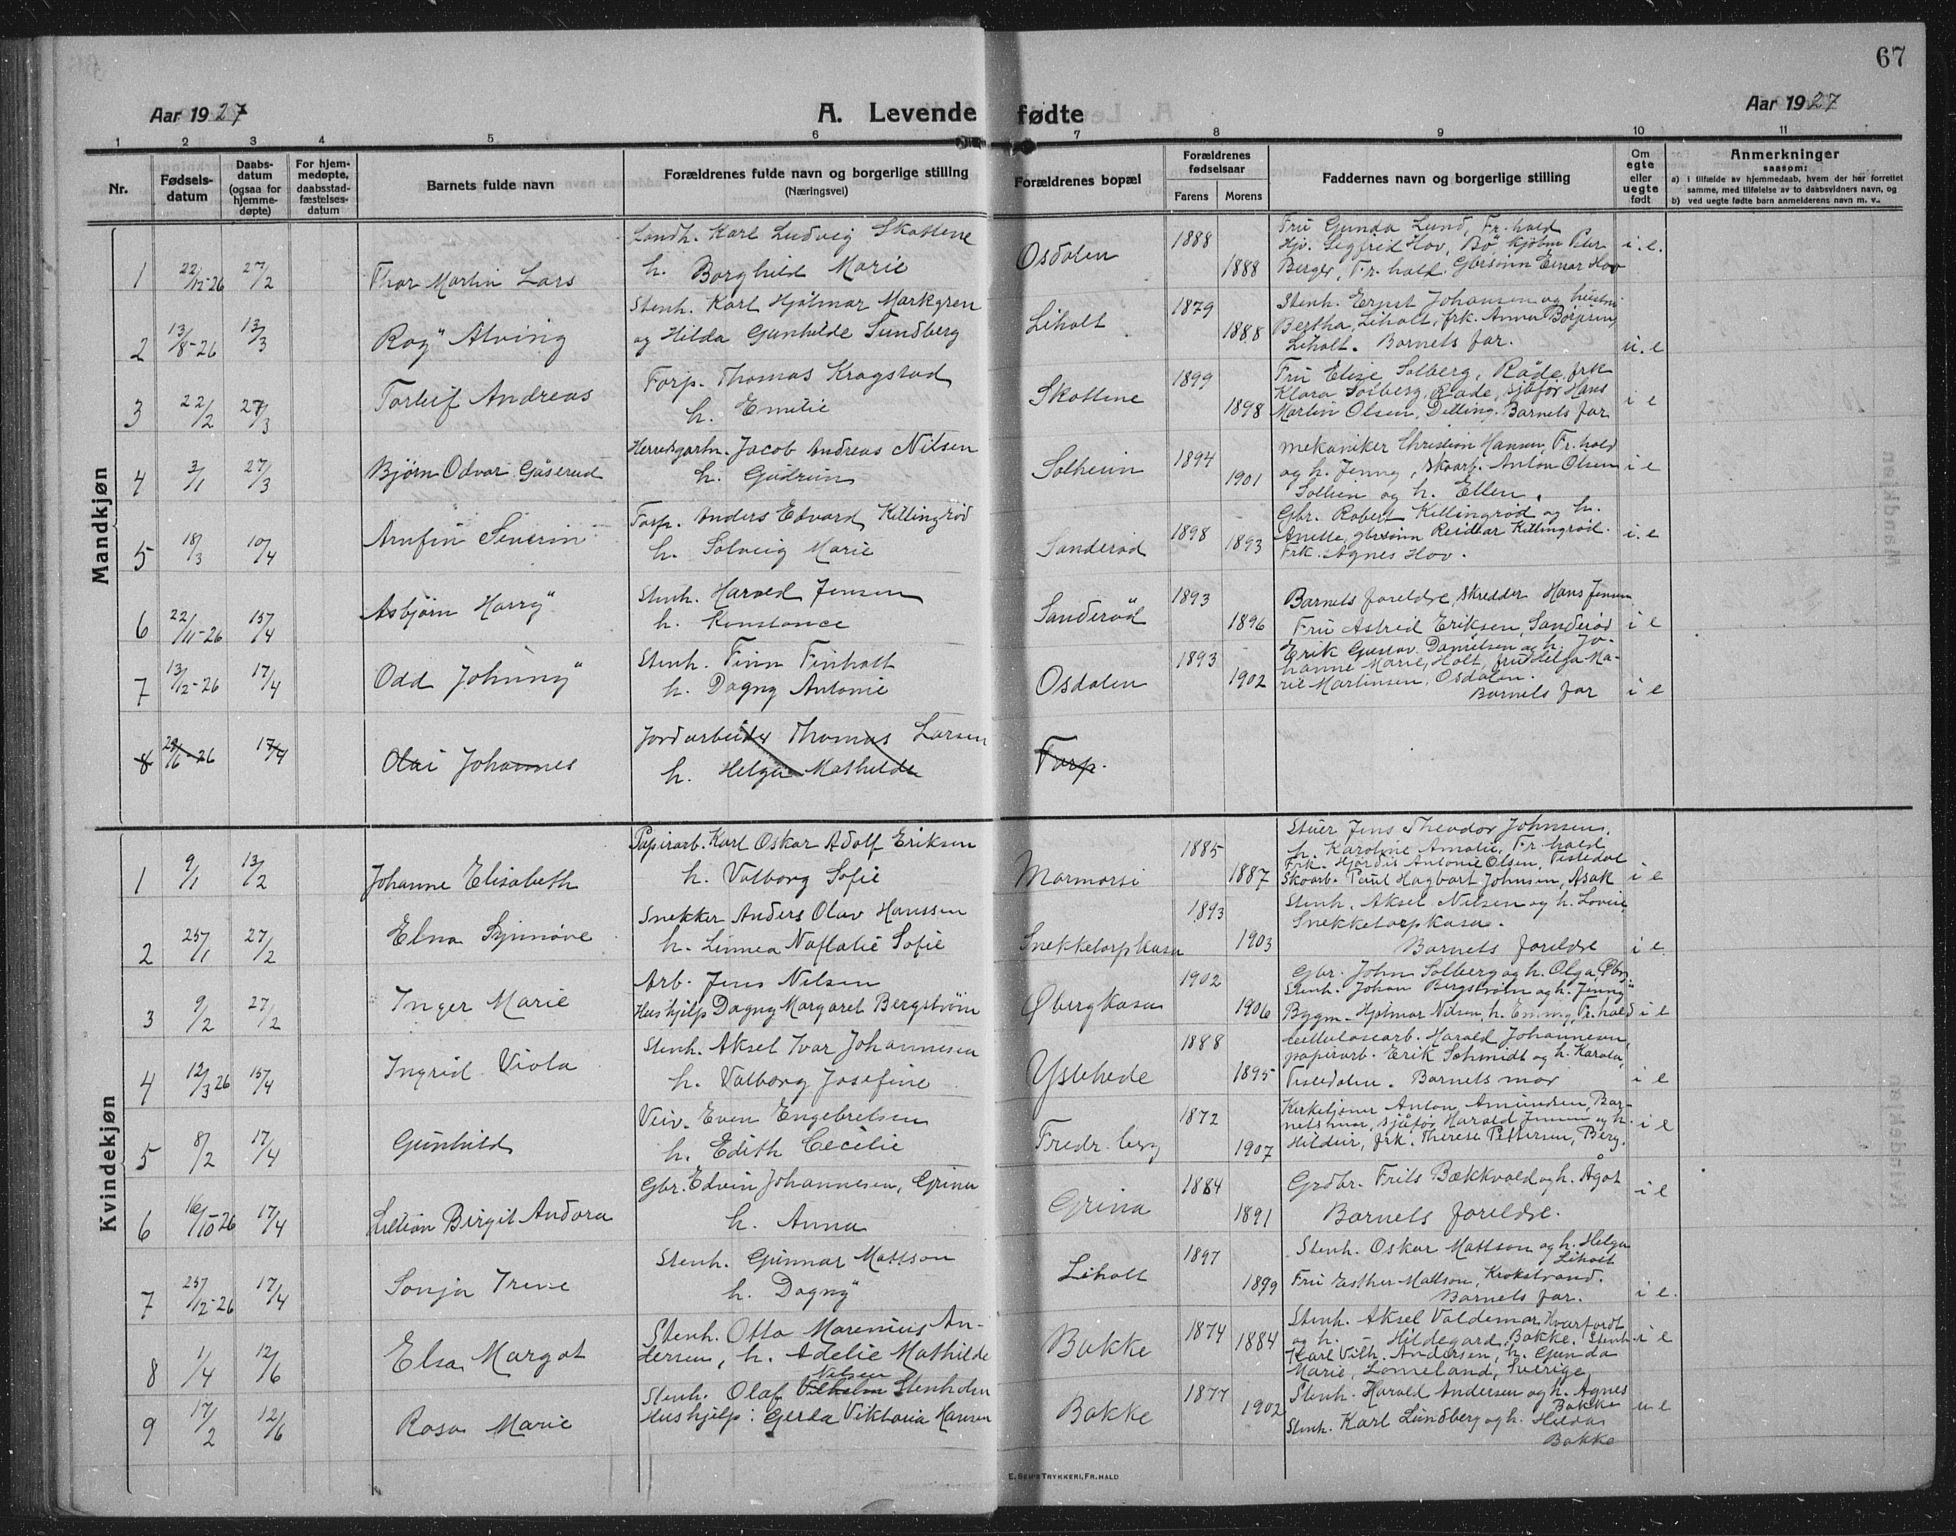 67
Aar 1927
A. Levende fødte
Aar 1927
1 2 3 4 5 6 7 8 9 10 11
Nr.
Fødsels-
datum
Daabs-
datum
(ogsaa for
hjemme-
døpte)
For hjem-
medøpte,
daabsstad-
fæstelses-
datum
Barnets fulde navn
Forældrenes fulde navn og borgerlige stilling
(Næringsvei)
Forældrenes bopæl
Forældrenes
fødselsaar
Farens Morens
Faddernes navn og borgerlige stilling
Om
egte
eller
uegte
født
Anmerkninger
saasom:
a) i tilfælde av hjemmedaab, hvem der har forrettet
samme, med tilføielse av to daabsvidners navn, og
b) ved uegte fødte barn anmelderens navn m. v.
Mandkjøn
1 22/12-26 27/2 Thor Martin Lars
Landh. Karl Ludvig Skottene
h. Borghild Marie
Osdalen 1888 1888
Fru Gunda Lund, Fr.hald
Hjv. Sigfred Hov, Bø kjøbm Peter
Berger, Fr.hald. Gbrsønn Einar Hov
i. e.
2 13/8-26 13/3 Roy Alving
Stenh. Karl Hjalmar Markgren
og Hilda Gunhilde Sundberg
Liholt 1879 1888
Stenh. Ernst Johansen og hustru
Bertha, Liholt, frk. Anna
Liholt. Barnets far.
u. e
3 22/2 27/3 Torleif Andreas
Forp. Thomas Kragstad
h. Emilie
Skottene 1899 1898
Fru Elise Solberg, Råde, frk
Klara Solberg, Råde, sjåfør Hans
Martin Olsen, Dilling. Barnets far
i e
4 3/1 27/3 Bjørn Odvar Gåserud
Herredsgartn. Jacob Andreas Nilsen
h. Gudrun
Solheim 1894 1901
mekaniker Christian Hansen, Fr.hald
og h. Jenny, skoarb. Anton Olsen
Solheim og h. Ellen.
i e
5 18/3 10/4 Arnfin Severin
Forp. Anders Edvard Killingrød
h. Solveig Marie
Sanderød 1898 1893
Gbr. Robert Killingrød og h.
Anette, gbrsønn Reidar Killingrød.
Frk. Agnes Hov.
i. e
6 22/11-26 15/4 Asbjørn Harry
Stenh. Harald Jensen
h. Konstance
Sanderød 1893 1896
Barnets foreldre, skredder Hans Jensen
Fru Astrid Eriksen, Sanderød
i e
7 13/12-26 17/4 Odd Johnny
Stenh. Finn Finholt
h. Dagny Antonie
Osdalen 1893 1902
Erik Gustav Danielsen og h. Jo-
hanne Marie, Holt, fru Helga Ma-
rie Martinsen, Osdalen.
Barnets far
i e
8 29/6-26 17/4 Olai Johannes
Jordarbeider Thomas Larsen
h. Helga Mathilde
Torp.
Kvindekjøn
1 9/1 13/2 Johanne Elisabeth
Papirarb. Karl Oskar Adolf Eriksen
h. Valborg Sofie
1885 1887
Stuer Jens Theodor Johnsen,
h. Karoline Amalie, Fr.hald
Frk. Hjørdis Antonie Olsen, Tistedal
Skoarb. Paul Hagbart Johnsen, Asak
i e
2 25/1 27/2 Elna Synnøve
Snekker Anders Olav Hanssen
h. Linnea Naftalie Sofie
Snekketorpkasa 1893 1903
Stenh. Aksel Nilsen og h. Lovise,
Snekketorpkasa.
Barnets foreldre
i e
3 9/2 27/2 Inger Marie
Arb. Jens Nilsen
Hushjelp Dagny Margaret Bergstrøm
Øbergkasa 1902 1906
Gbr. John Solberg og h. Olga
Stenh. Johan Bergstrøm og h. Jenny
Bygm. Hjalmar Nilsen, h. Emmy, Fr.hald
i e
4 12/3 26 15/4 Ingrid Viola
Stenh. Aksel Ivar Johannesen
h. Valborg Josefine
Ystehede 1888 1895
Cellulosearb. Harald Johannesen,
papirarb. Erik Schmidt og h. Karola,
Tistedalen. Barnets mor
i e
5 8/2 17/4 Gunhild
Veiv. Even Engebretsen
h. Edith Cecilie
Fredr. berg 1872 1907
Kirketjener Anton Amundsen, Bar-
netshuar, sjåfør Harald Jensen og h.
Hildur, frk. Therese Pettersen, Berg.
i e
6 16/10-26 17/4 Lillian Birgit Andora
Gbr. Edvin Johannesen, Grina
h. Anna
Grina 1884 1891
Grdbr. Frits Bækkvold og h. Ågot
Barnets foreldre.
i e
7 25/12-26 17/4 Sonja Irene
Stenh. Gunnar Mattson
h. Dagny
Liholt 1897 1899
Stenh. Oskar Mattson og h. Helga
Liholt
Fru Esther Mattson, Krokstrand.
Barnets far.
i e.
8 1/4 12/6 Elsa Margot
Stenh. Otto Marenius An-
dersen, h. Adelie Mathilde
Bakke 1874 1884
Stenh. Aksel Valdemar Kvarfordt
og h. Hildegard, Bakke. Stenh.
Karl Vilh. Andersen, h. Gunda
Marie, Lomeland, Sverige
i e
9 17/2 12/6 Rosa Marie
Nilsen
Stenh. Olaf Vilhelm Stenholm
Hushjelp: Gerda Viktoria Hansen
Bakke 1877 1902
Stenh. Harald Andersen og h. Agnes
Bakke
Stenh. Karl Lundberg og h. Hilda
Bakke
u e
E. Sem's Trykkeri, Fr.hald